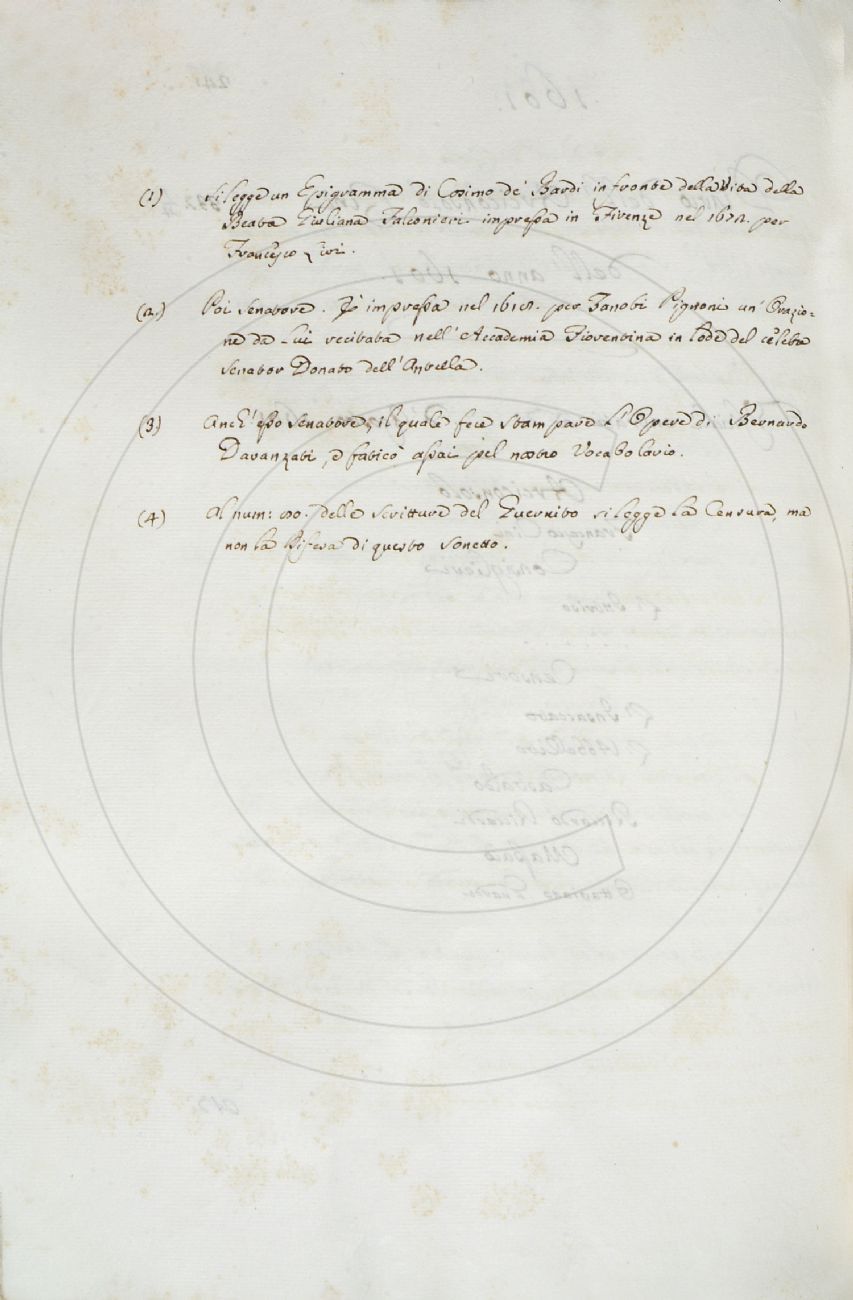 (1) Si legge un Epigramma di Cosimo de' Bardi in fronte della Vita della
Beata Giuliana Falconieri impressa in Firenze nel per
Francesco
(2) Poi Senatore. È impressa nel per Zanobi Pignoni un' Orazio=
ne da Lui recitata nell' Accademia Fiorentina in lode del celebre
Senator Donato dell' Antella.
(3) Anch' esso Senatore, il quale fece stampare l'Opere di Bernardo
Davanzati, e faticò assai pel nostro Vocabolario.
(4) Al num: delle Scritture del Guernito si legge la Censura, ma
non la Difesa di questo Sonetto.